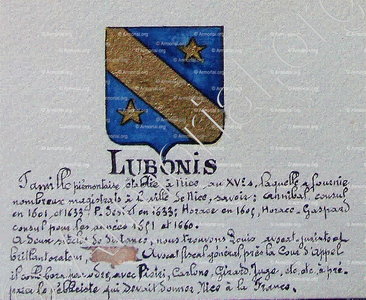 LUBONIS
Famille piémontaise établie à Nice, au XVe s, laquelle a fournie
nombreux magistrats à la ville de Nice, savoir: Annibal consul
en 1601, et 1633. P. en 1633; Horace en 1605, Horace-Gaspard
consul pour les années 1651 et 1660.
nous trouvons Louis avocat juriste et
brillant orateur, Avocat fiscal général près la Cour d'Appel
il avec Piéiri, Carlone, Girard, Auge, etc. etc. à pré-
parer le plébiciste qui devait donner Nice à la France.